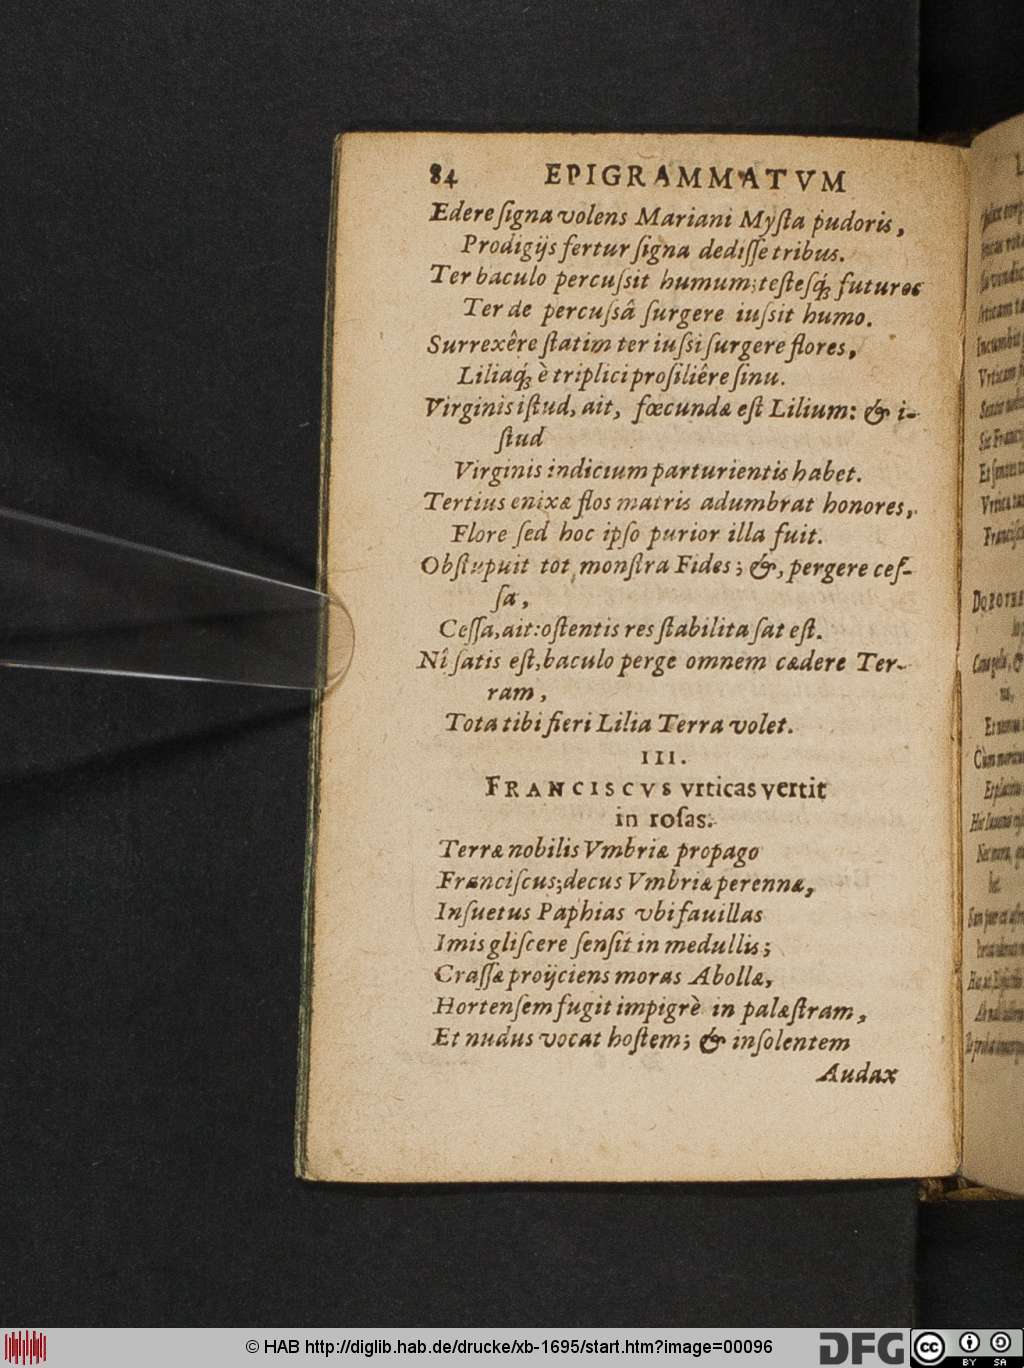 84 EPIGRAMMATVM
Edere ſigna volens Mariani Myſta pudoris,
Prodigijs fertur ſigna dediſſe tribus.
Ter baculo percuſsit humum; teſteſq́; futuros
Ter de percuſsâ ſurgere iuſsit humo.
Surrexêre ſtatim ter iuſsi ſurgere flores,
Liliaq́; è triplici proſiliêre ſinu.
Virginis iſtud, ait, fœcundæ eſt Lilium: & i-
ſtud
Virginis indicium parturientis habet.
Tertius enixæ flos matris adumbrat honores,
Flore ſed hoc ipſo purior illa fuit.
Obſtupuit tot monſtra Fides; &, pergere ceſ-
ſa,
Ceſſa, ait: oſtentis res ſtabilita ſat eſt.
Nî ſatis eſt, baculo perge omnem cædere Ter-
ram,
Tota tibi fieri Lilia Terra volet.
III.
FRANCISCVS vrticas vertit
in roſas.
Terræ nobilis Vmbriæ propago
Franciſcus; decus Vmbriæ perennæ,
Inſuetus Paphias vbi fauillas
Imis gliſcere ſenſit in medullis;
Craſſæ proijciens moras Abollæ,
Hortenſem fugit impigrè in palæſtram,
Et nudus vocat hoſtem; & inſolentem
Audax
© HAB http://diglib.hab.de/drucke/xb-1695/start.htm?image=00096
DFG
cc
BY SA